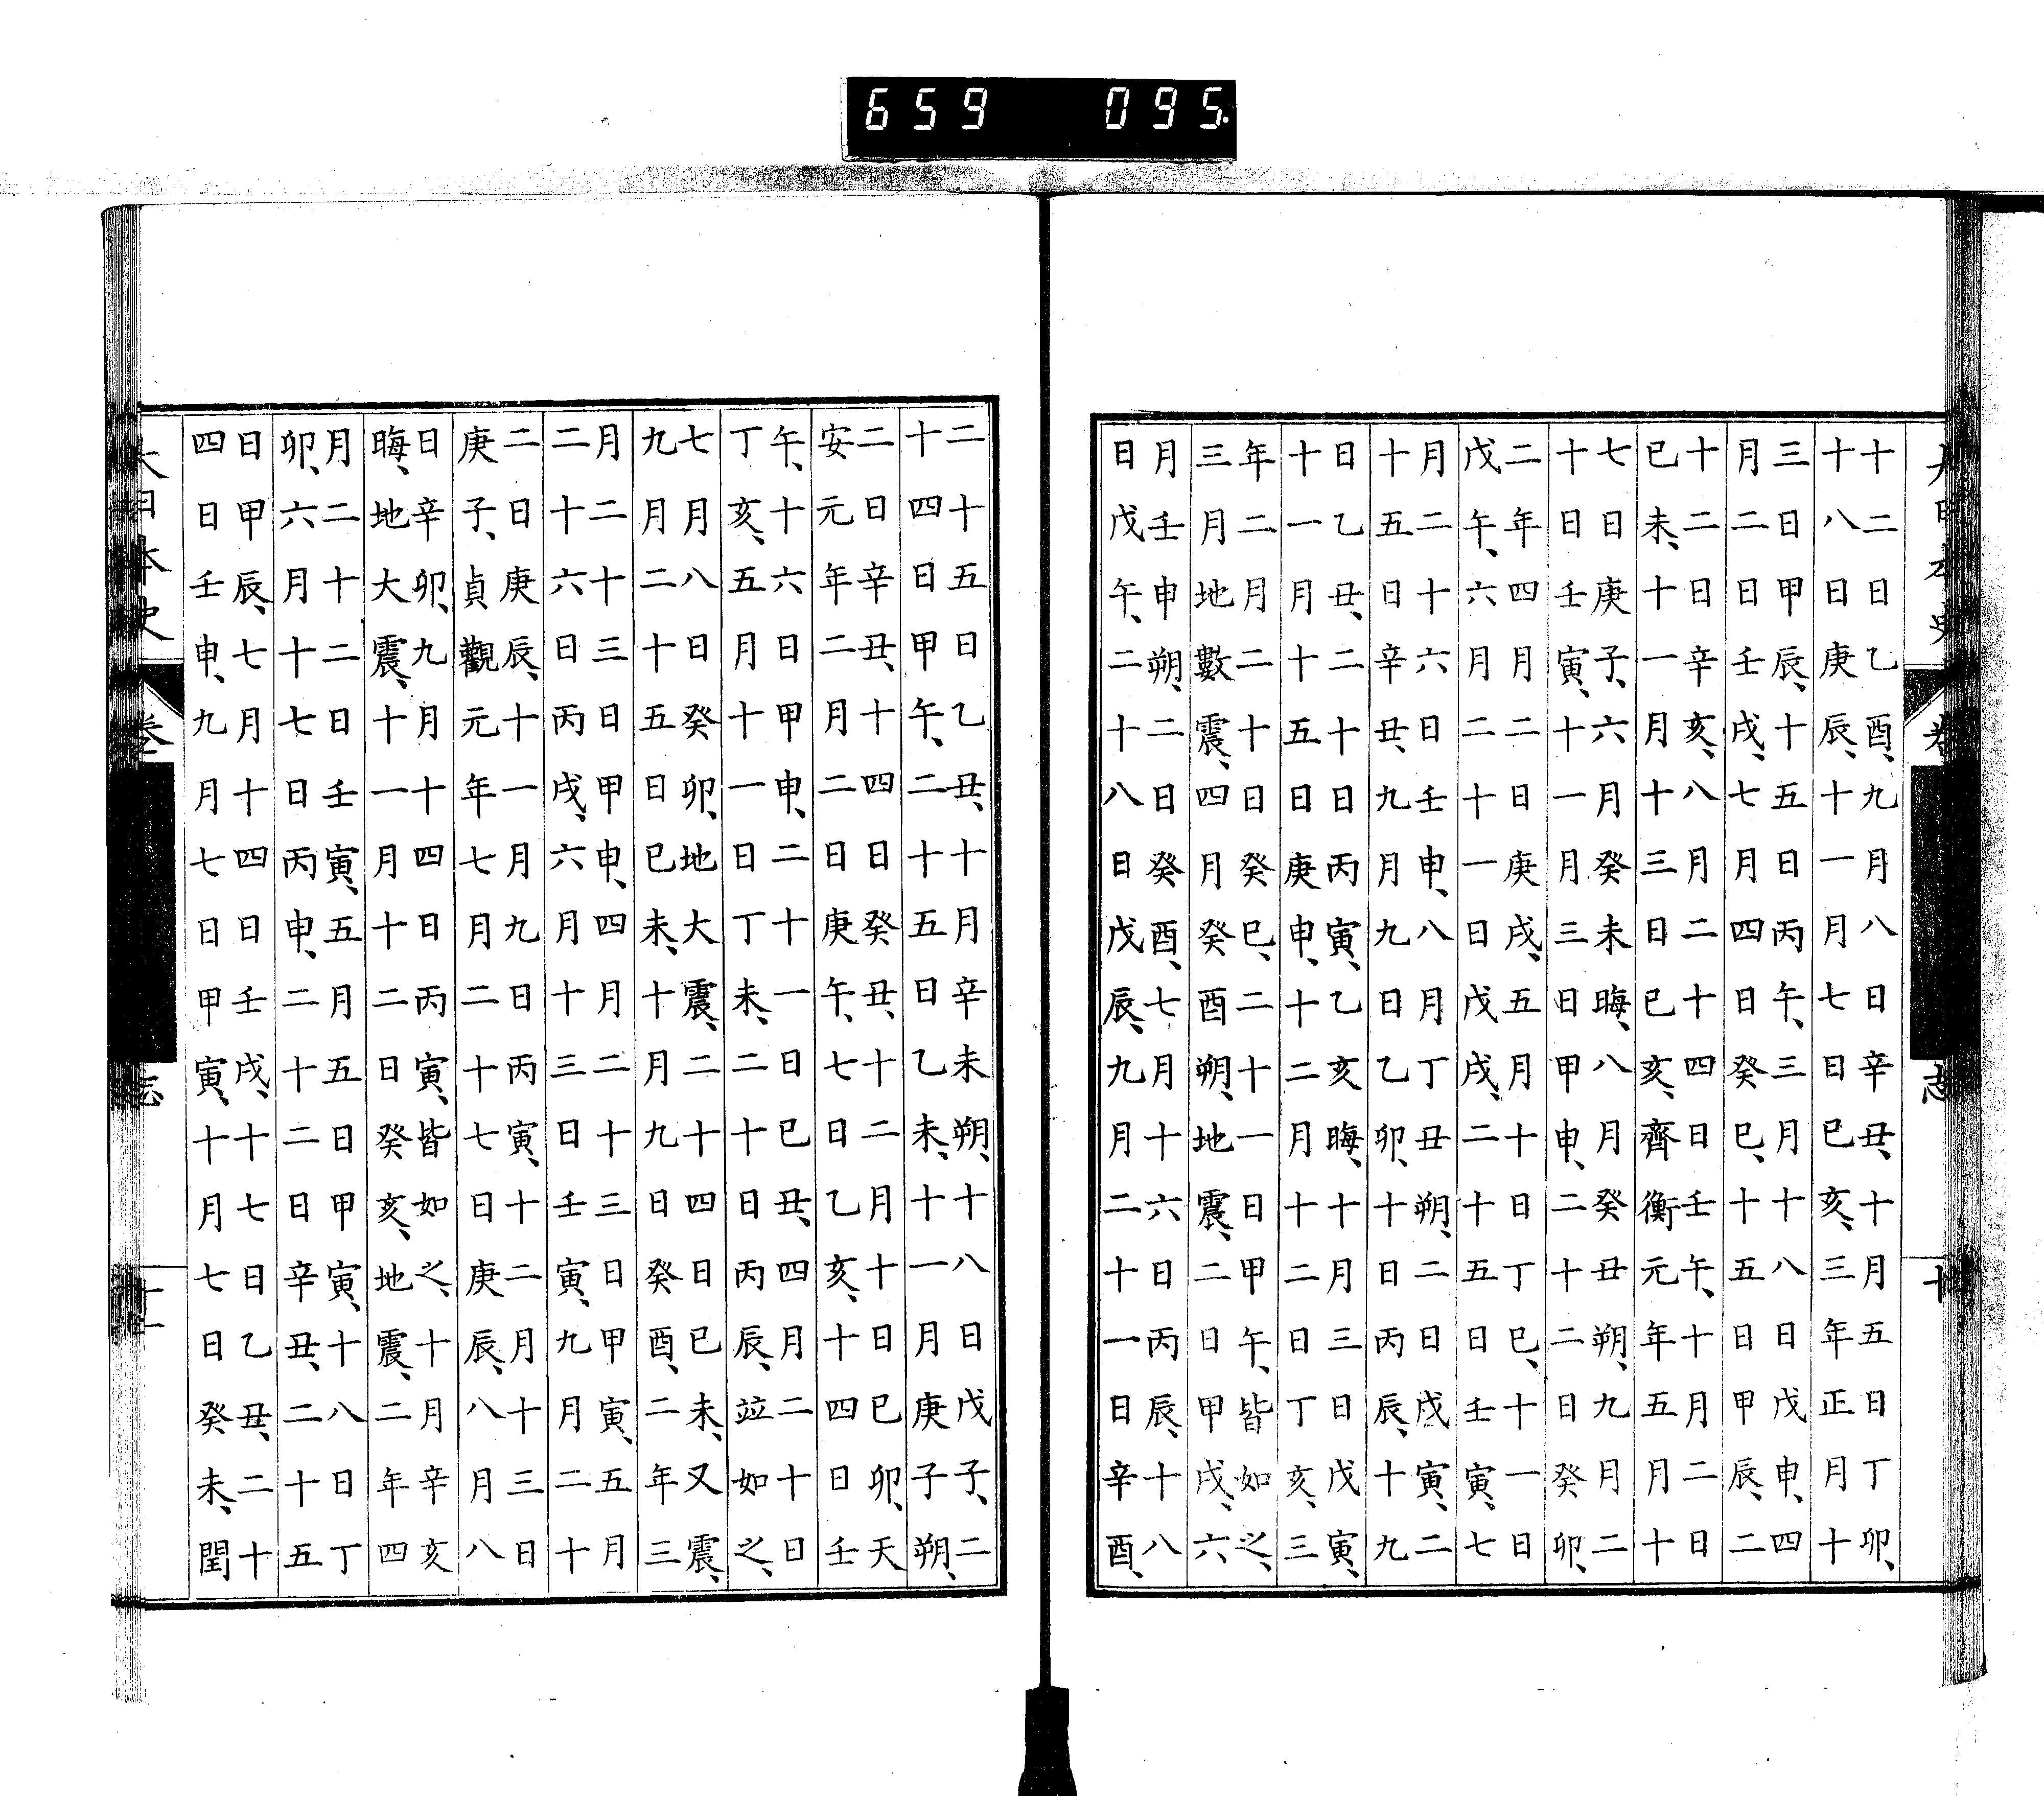 659 095
大日本史 卷 志 十
十二日乙酉、九月八日辛丑、十月五日丁卯、
十八日庚辰、十一月七日巳亥、三年正月十
三日甲辰、十五日丙午、三月十八日戊申、四
月二日壬戌、七月四日癸巳、十五日甲辰、二
十二日辛亥、八月二十四日壬午、十月二日
巳未、十一月十三日巳亥、齊衡元年五月十
七日庚子、六月癸未晦、八月癸丑朔、九月二
十日壬寅、十一月三日甲申、二十二日癸卯、
二年四月二日庚戌、五月十日丁巳、十一日
戊午、六月二十一日戊戌、二十五日壬寅、七
月二十六日壬申、八月丁丑朔、二日戊寅、二
十五日辛丑、九月九日乙卯、十日丙辰、十九
日乙丑、二十日丙寅、乙亥晦、十月三日戊寅、
十一月十五日庚申、十二月十二日丁亥、三
年二月二十日癸巳、二十一日甲午、皆如之、
三月地數震、四月癸酉朔、地震、二日甲戌、六
月壬申朔、二日癸酉、七月十六日丙辰、十八
日戊午、二十八日戊辰、九月二十一日辛酉、
二十五日乙丑、十月辛未朔、十八日戊子、二
十四日甲午、二十五日乙未、十一月庚子朔、
二日辛丑、十四日癸丑、十二月十日巳卯、天
安元年二月二日庚午、七日乙亥、十四日壬
午、十六日甲申、二十一日巳丑、四月二十日
丁亥、五月十一日丁未、二十日丙辰、竝如之、
七月八日癸卯、地大震、二十四日巳未、又震、
九月二十五日巳未、十月九日癸酉、二年三
月二十三日甲申、四月二十三日甲寅、五月
二十六日丙戌、六月十三日壬寅、九月二十
二日庚辰、十一月九日丙寅、十二月十三日
庚子、貞觀元年七月二十七日庚辰、八月八
日辛卯、九月十四日丙寅、皆如之、十月辛亥
晦、地大震、十一月十二日癸亥、地震、二年四
月二十二日壬寅、五月五日甲寅、十八日丁
卯、六月十七日丙申、二十二日辛丑、二十五
日甲辰、七月十四日壬戌、十七日乙丑、二十
四日壬申、九月七日甲寅、十月七日癸未、閏
大日本史 卷 志